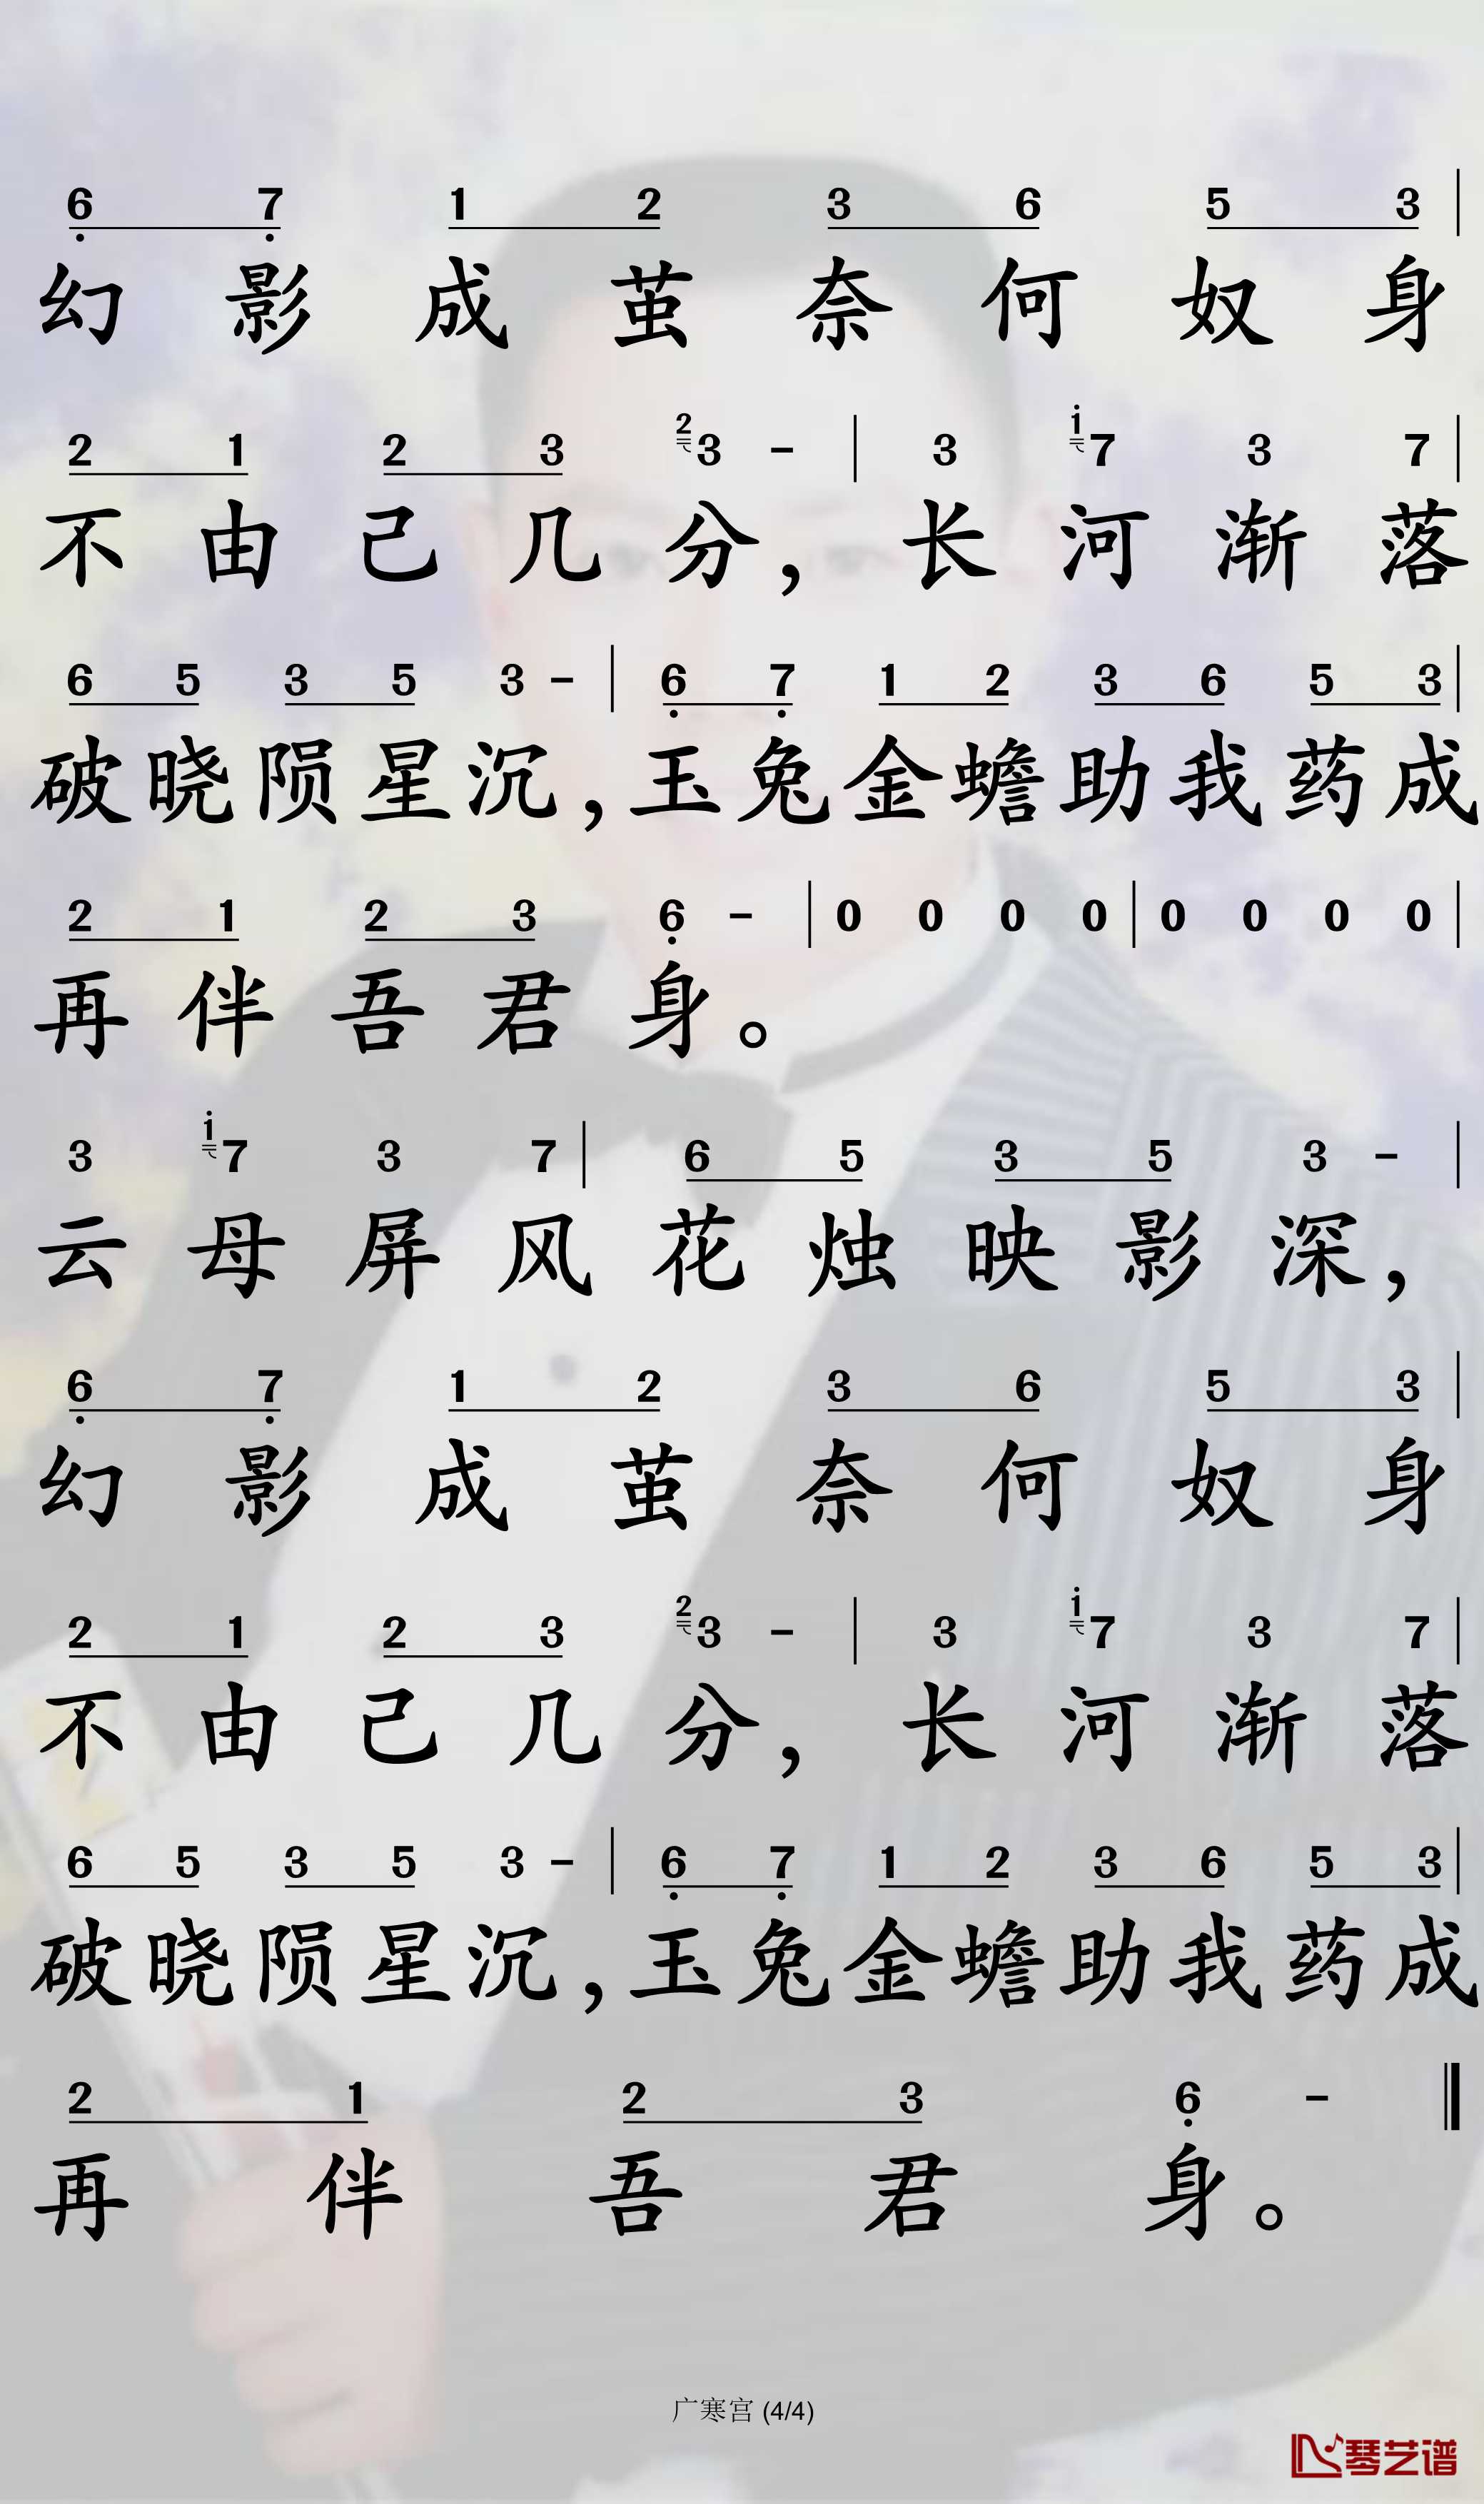 6 7 1 2 3 6 5 3
幻影成茧奈何奴身
2 1 2 3 2 3 - 3 i 7 3 7
不由己几分，长河渐落
6 5 3 5 3 - 6 7 1 2 3 6 5 3
破晓陨星沉，玉兔金蟾助我药成
2 1 2 3 6 - 0 0 0 0 0 0 0 0
再伴吾君身。
3 i 7 3 7 6 5 3 5 3 -
云母屏风花烛映影深，
6 7 1 2 3 6 5 3
幻影成茧奈何奴身
2 1 2 3 2 3 - 3 i 7 3 7
不由己几分，长河渐落
6 5 3 5 3 - 6 7 1 2 3 6 5 3
破晓陨星沉，玉兔金蟾助我药成
2 1 2 3 6 -
再伴吾君身。
广寒宫 (4/4)
琴艺谱